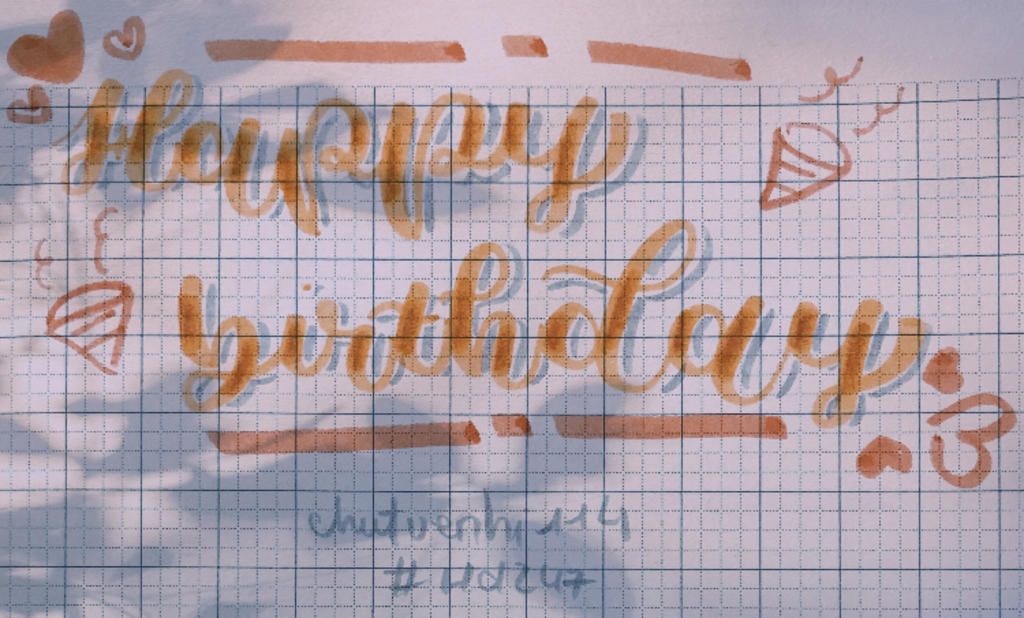 Happy
birthday
chutuenhi 114
# 11d247